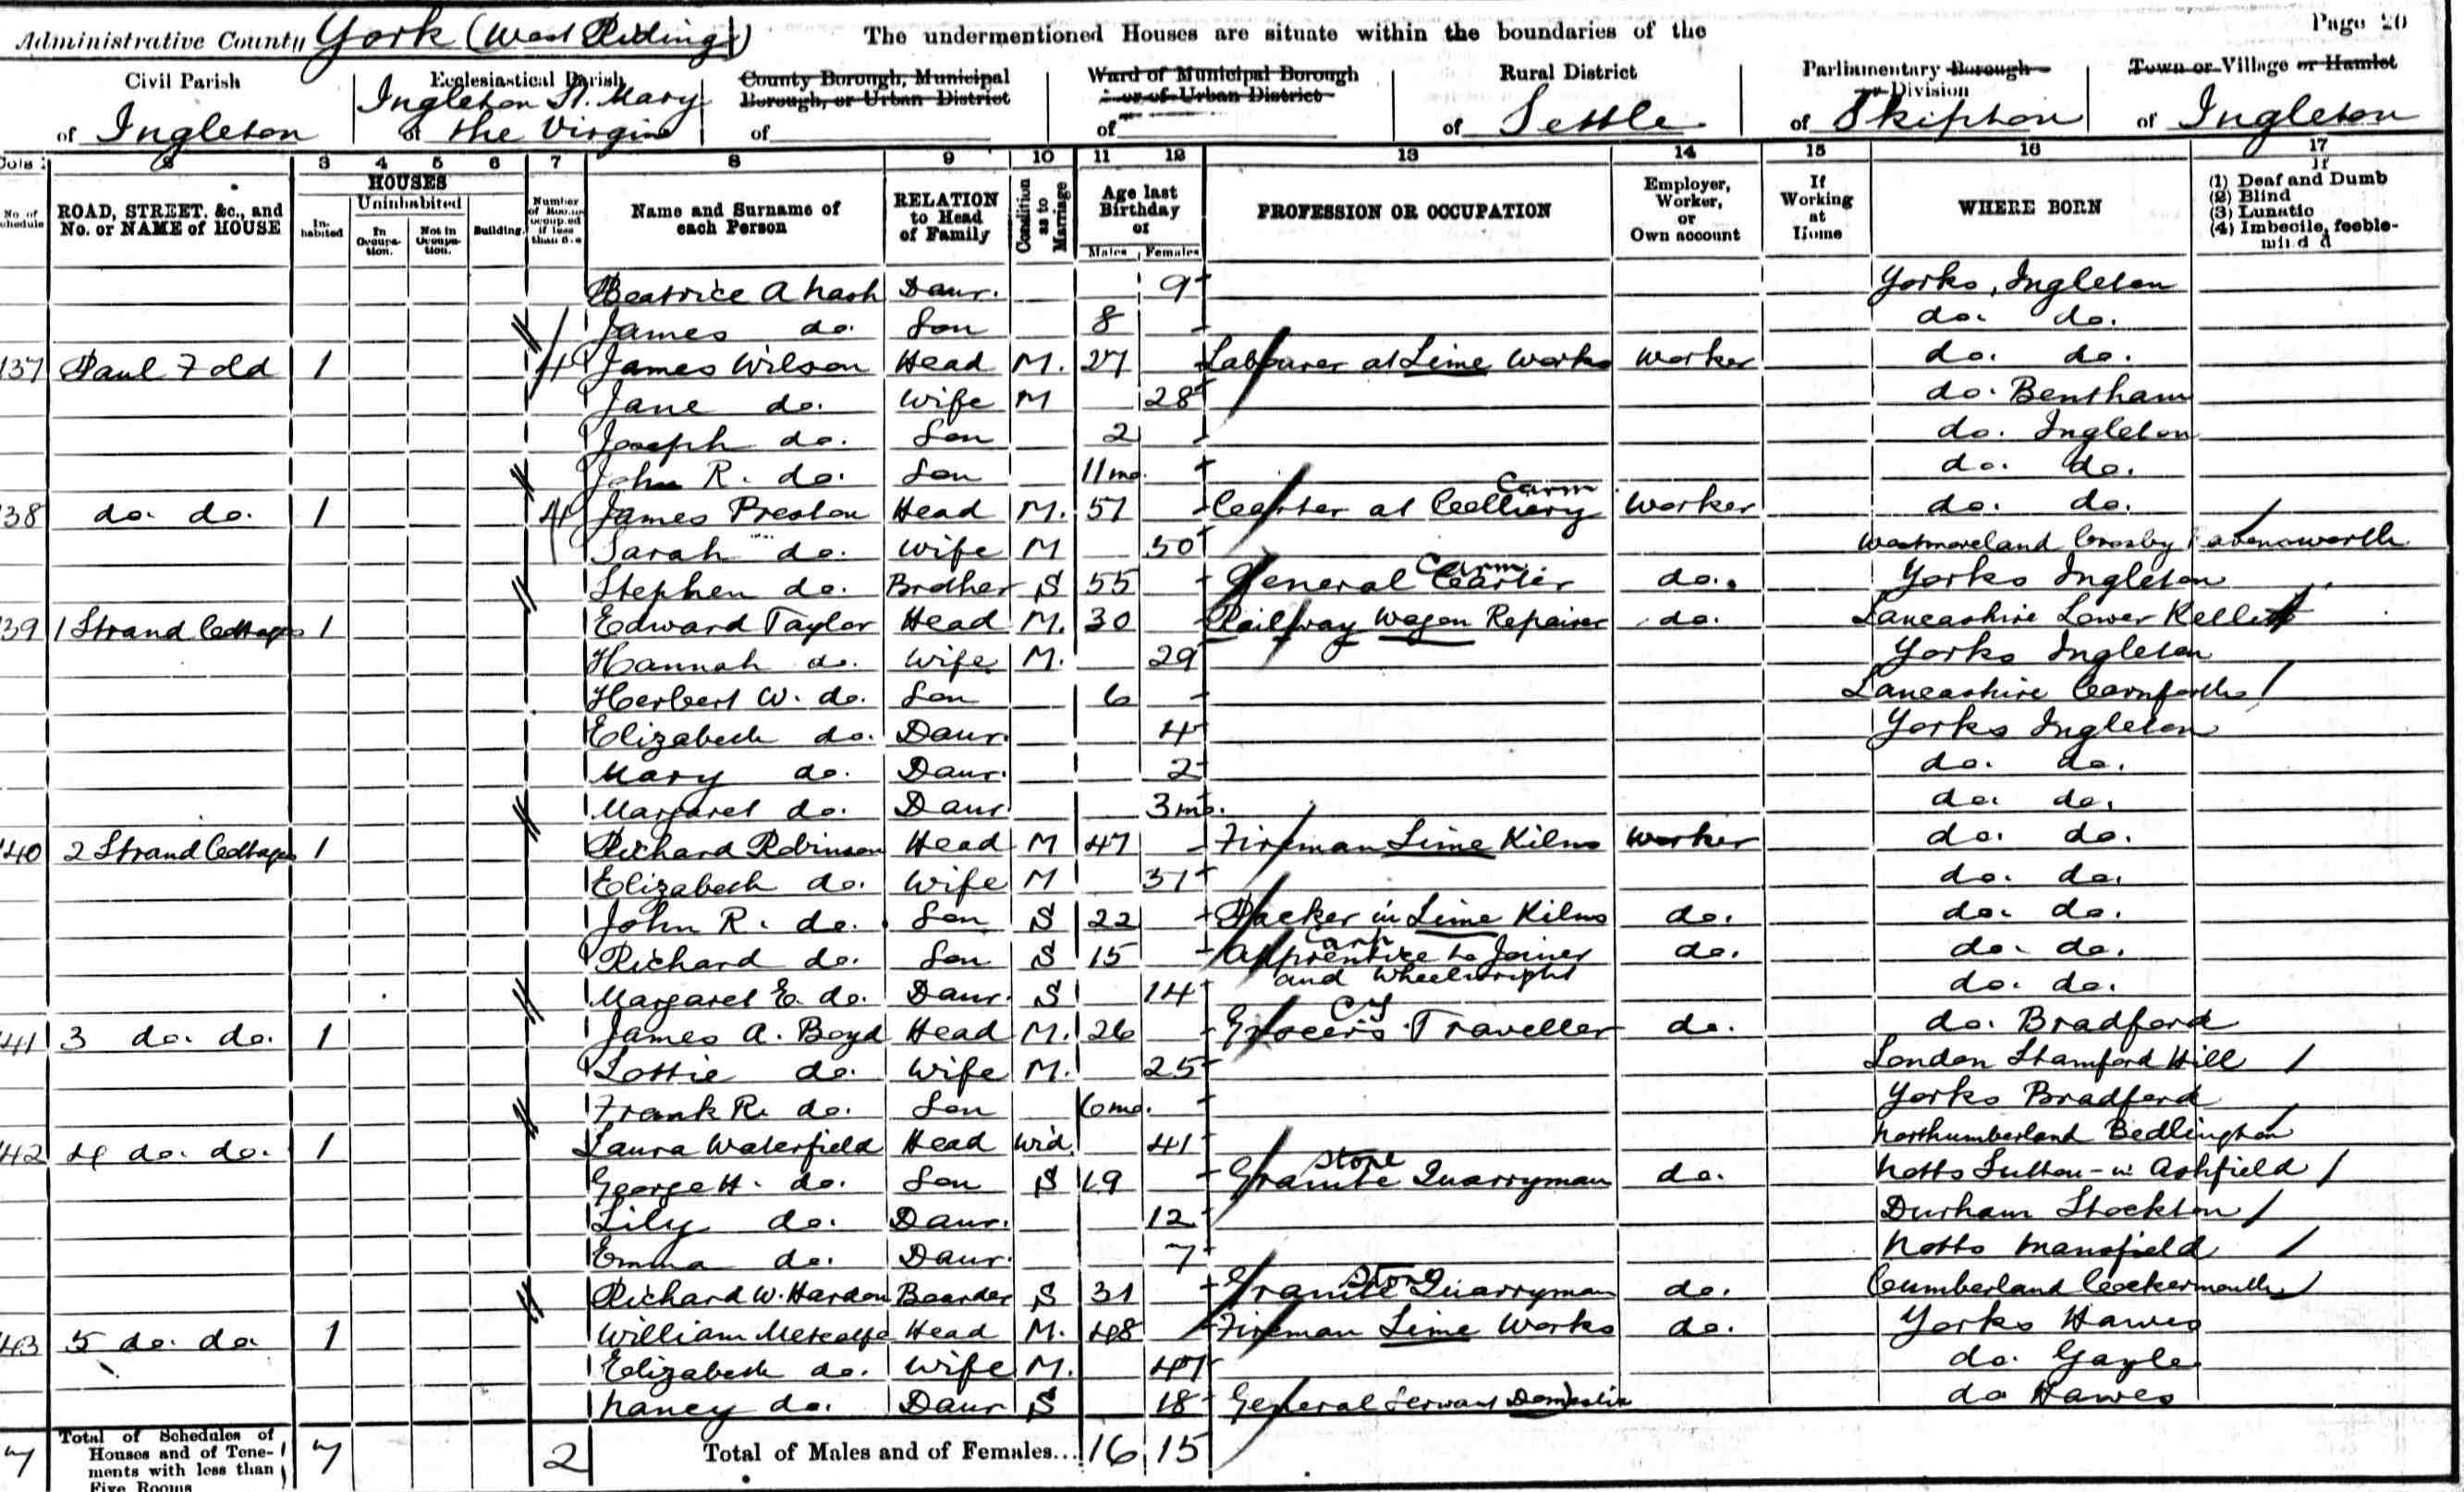 Administrative County York (West Riding) The undermentioned Houses are situate within the boundaries of the Page 20
Civil Parish of Ingleton
Ecclesiastical Parish of Ingleton St. Mary the Virgin
County Borough, Municipal Borough, or Urban District of
Ward of Municipal Borough or of Urban District of
Rural District of Settle
Parliamentary Borough or Division of Skipton
Town or Village or Hamlet of Ingleton
Cols: 2 3 4 5 6 7 8 9 10 11 12 13 14 15 16 17
No. of Schedule
ROAD, STREET, &c., and No. or NAME of HOUSE
HOUSES
Inhabited
Uninhabited
In Occupation.
Not in Occupation.
Building.
Number of Rooms occupied if less than five
Name and Surname of each Person
RELATION to Head of Family
Condition as to Marriage
Age last Birthday of
Males Females
PROFESSION OR OCCUPATION
Employer, Worker, or Own account
If Working at Home
WHERE BORN
If
(1) Deaf and Dumb
(2) Blind
(3) Lunatic
(4) Imbecile, feeble-minded
Beatrice A Nash Daur. 9 Yorks, Ingleton
James do. Son 8 do. do.
137 Paul Fold 1 4 James Wilson Head M. 27 Labourer at Lime Works Worker do. do.
Jane do. Wife M 28 do. Bentham
Joseph do. Son 2 do. Ingleton
John R. do. Son 11 mo. do. do.
138 do. do. 1 4 James Preston Head M. 57 Carter at Colliery Carm Worker do. do.
Sarah do. Wife M 50 Westmoreland Crosby Ravensworth
Stephen do. Brother S 55 General Carter Carm do. Yorks Ingleton
139 1 Strand Cottages 1 Edward Taylor Head M. 30 Railway Wagon Repairer do. Lancashire Lower Kellet
Hannah do. Wife M. 29 Yorks Ingleton
Herbert W. do. Son 6 Lancashire Carnforth
Elizabeth do. Daur. 4 Yorks Ingleton
Mary do. Daur. 2 do. do.
Margaret do. Daur 3 mo. do. do.
140 2 Strand Cottages 1 Richard Robinson Head M 47 Fireman Lime Kilns Worker do. do.
Elizabeth do. Wife M 37 do. do.
John R. do. Son S 22 Packer in Lime Kilns do. do. do.
Richard do. Son S 15 Apprentice to Joiner and Wheelwright Carp do. do. do.
Margaret E. do. Daur. S 14 do. do.
141 3 do. do. 1 James A. Boyd Head M. 26 Grocer's Traveller do. do. Bradford
Lottie do. Wife M. 25 London Stamford Hill
Frank R. do. Son 6 mo. Yorks Bradford
142 4 do. do. 1 Laura Waterfield Head Wid. 41 Northumberland Bedlington
George H. do. Son S 19 Granite Quarryman Stone do. Notts Sutton-in Ashfield
Lily do. Daur. 12 Durham Stockton
Emma do. Daur. 7 Notts Mansfield
Richard W. Hardon Boarder S 31 Granite Quarryman Stone do. Cumberland Cockermouth
143 5 do. do. 1 William Metcalfe Head M. 48 Fireman Lime Works do. Yorks Hawes
Elizabeth do. Wife M. 47 do. Gayle
Nancy do. Daur S 18 General Servant Domestic do Hawes
7 Total of Schedules of Houses and of Tenements with less than Five Rooms 7 2 Total of Males and of Females... 16 15